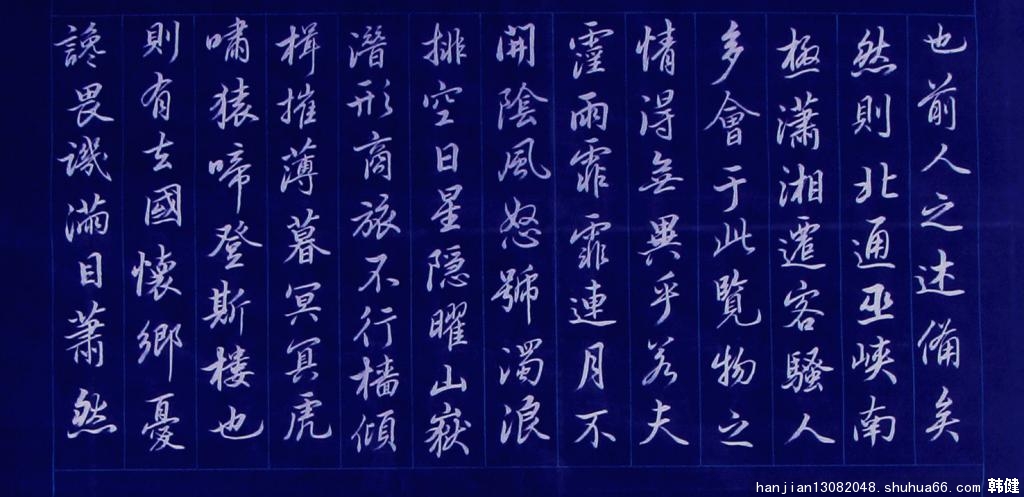 也前人之述備矣
然則北通巫峽南
極瀟湘遷客騷人
多會于此覽物之
情得無異乎若夫
霪雨霏霏連月不
開陰風怒號濁浪
排空日星隱曜山嶽
潛形商旅不行檣傾
楫摧薄暮冥冥虎
嘯猿啼登斯樓也
則有去國懷鄉憂
讒畏譏滿目蕭然
hanjian13082048.shuhua66.com 韩健